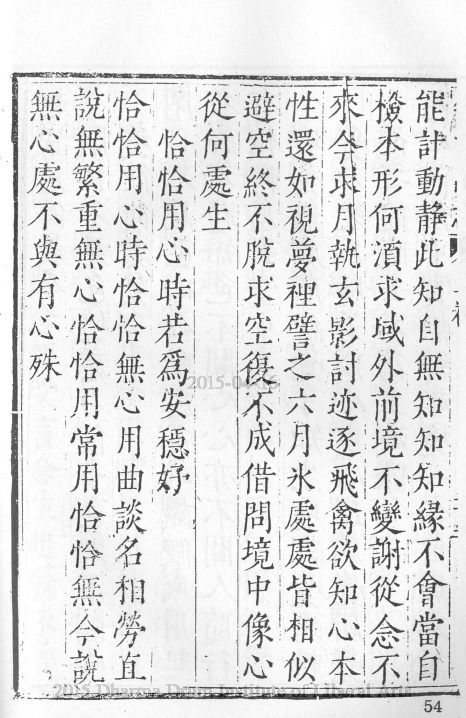 能計動靜此知自無知知知緣不會當自
撿本形何湏求域外前境不變謝從念不
來今求月執玄影討迹逐飛禽欲知心本
性還如視夢裡譬之六月氷處處皆相似
避空終不脫求空復不成借問境中像心
從何處生
恰恰用心時若爲安穩好
恰恰用心時恰恰無心用曲談名相勞直
說無繁重無心恰恰用常用恰恰無今說
無心處不與有心殊
2015-04-16
2015 Dharma Drum Institute of Liberal Arts
54